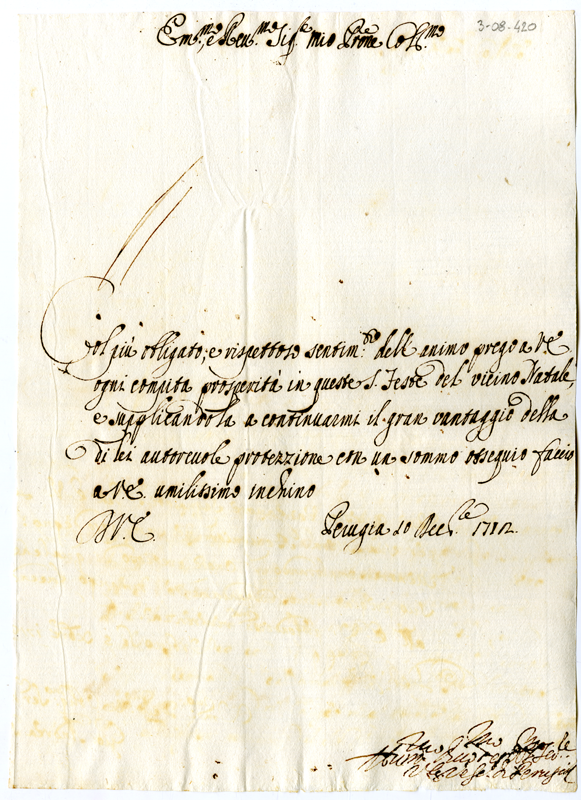 3-08-420
Em.mo e Reu.mo Sig.re mio Prone Col.mo
Col più obligato, e rispettoso sentim.to dell'animo prego a V.E.
ogni compita prosperità in queste S. Feste del vicino Natale,
e supplicandola a continuarmi il gran vantaggio della
di lei autoreuole protezzione con un sommo ossequio faccio
a V.E. umilissimo inchino
D.V.E. Perugia 10 Dec.bre 1712.